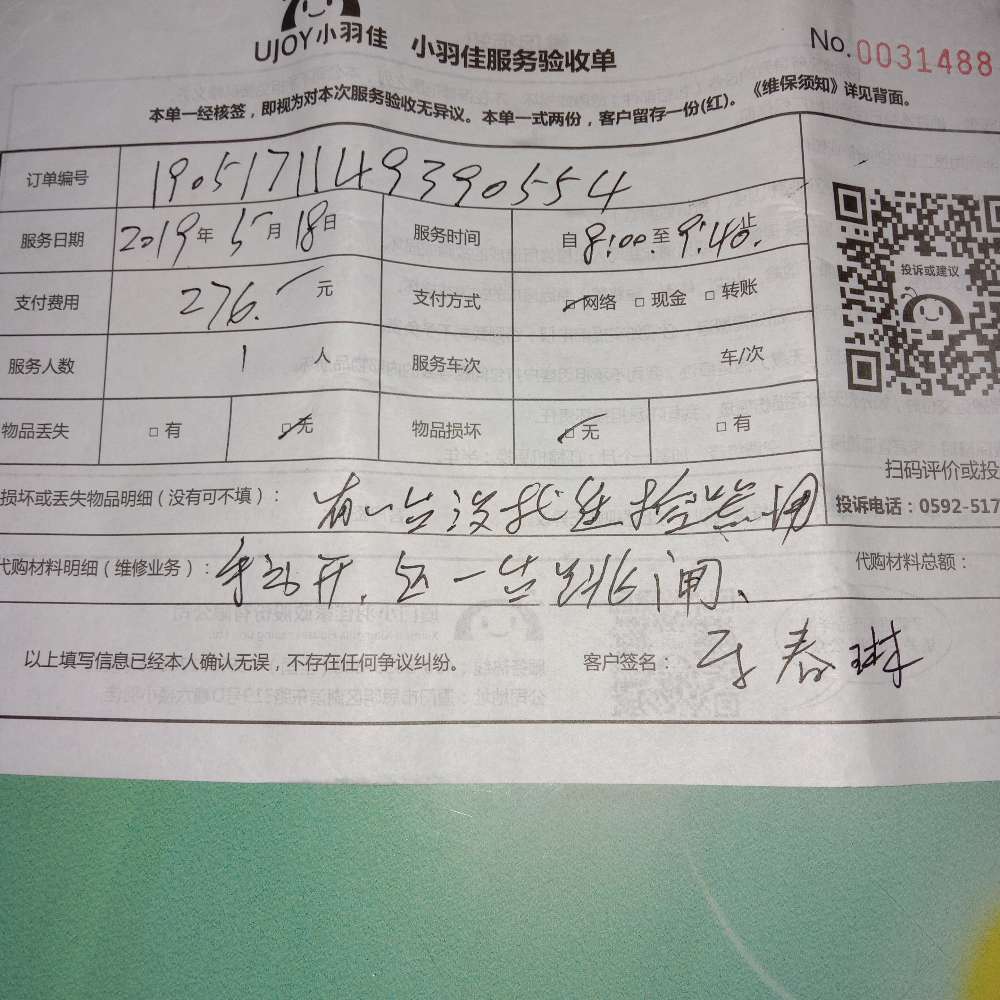 UJOY小羽佳 小羽佳服务验收单 No.0031488
本单一经核签，即视为对本次服务验收无异议。本单一式两份，客户留存一份(红)。《维保须知》详见背面。
订单编号 190517114939390554
服务日期 2019年5月18日 服务时间 自8:00至9:40止
支付费用 276.元 支付方式 □网络 □现金 □转账
投诉或建议
服务人数 1人 服务车次 车/次
物品丢失 □有 □无 物品损坏 □无 □有
扫码评价或投
损坏或丢失物品明细（没有可不填）： 有一台没
投诉电话：0592-517
代购材料明细（维修业务）： 开, 一台跳闸、
代购材料总额：
以上填写信息已经本人确认无误，不存在任何争议纠纷。 客户签名： 春琳